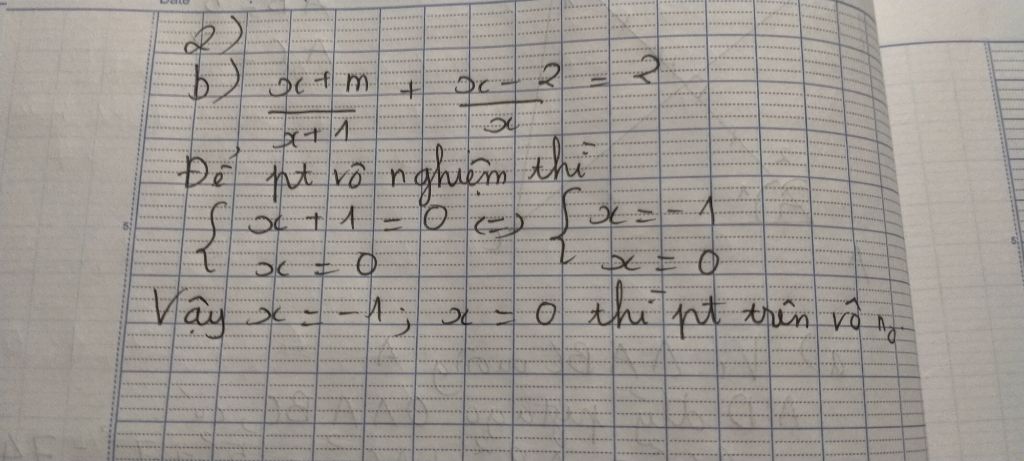 2)
b) \frac{x+m}{x+1} + \frac{x-2}{x} = 2
Để pt vô nghiệm thì
{ x + 1 = 0 <=> { x = -1
x = 0 x = 0
Vậy x = -1; x = 0 thì pt trên vô ng